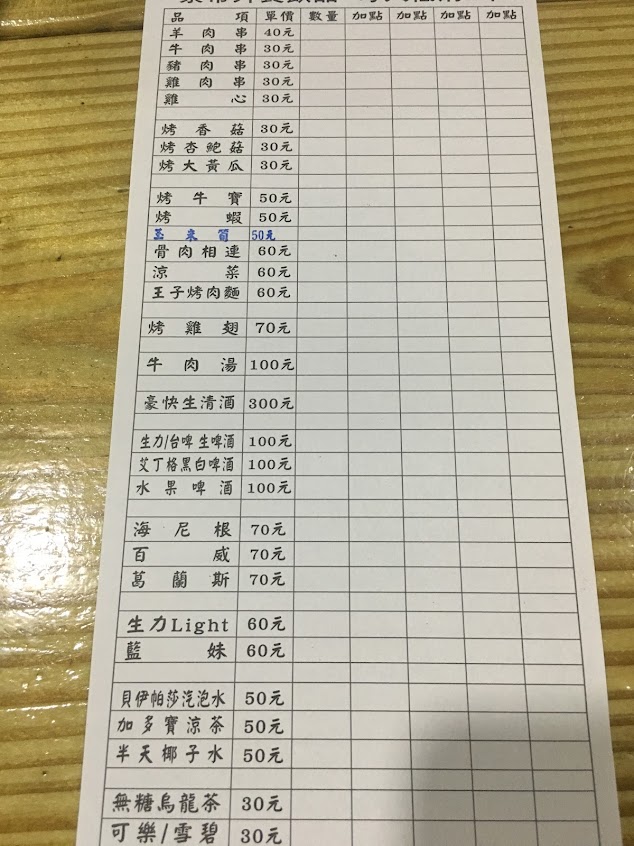 品項 單價 數量 加點 加點 加點 加點
羊肉串 40元
牛肉串 30元
豬肉串 30元
雞肉串 30元
雞心 30元
烤香菇 30元
烤杏鮑菇 30元
烤大黃瓜 30元
烤牛寶 50元
烤蝦 50元
玉米筍 50元
骨肉相連 60元
涼菜 60元
王子烤肉麵 60元
烤雞翅 70元
牛肉湯 100元
豪快生清酒 300元
生力/台啤 生啤酒 100元
艾丁格黑白啤酒 100元
水果啤酒 100元
海尼根 70元
百威 70元
葛蘭斯 70元
生力Light 60元
藍妹 60元
貝伊帕莎汽泡水 50元
加多寶涼茶 50元
半天椰子水 50元
無糖烏龍茶 30元
可樂/雪碧 30元